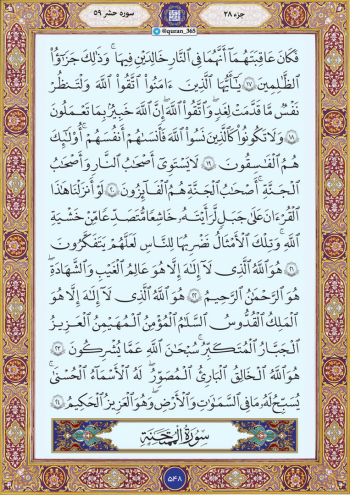 جزء ۲۸
@quran_365
سوره حشر ۵۹
فَكَانَ عَاقِبَتَهُمَآ أَنَّهُمَا فِي ٱلنَّارِ خَالِدَيۡنِ فِيهَاۚ وَذَٰلِكَ جَزَـٰٓؤُاْ
ٱلظَّـٰلِمِينَ ١٧ يَـٰٓأَيُّهَا ٱلَّذِينَ ءَامَنُواْ ٱتَّقُواْ ٱللَّهَ وَلۡتَنظُرۡ
نَفۡسٞ مَّا قَدَّمَتۡ لِغَدٖۖ وَٱتَّقُواْ ٱللَّهَۚ إِنَّ ٱللَّهَ خَبِيرُۢ بِمَا تَعۡمَلُونَ
١٨ وَلَا تَكُونُواْ كَٱلَّذِينَ نَسُواْ ٱللَّهَ فَأَنسَىٰهُمۡ أَنفُسَهُمۡۚ أُوْلَـٰٓئِكَ
هُمُ ٱلۡفَـٰسِقُونَ ١٩ لَا يَسۡتَوِيٓ أَصۡحَـٰبُ ٱلنَّارِ وَأَصۡحَـٰبُ
ٱلۡجَنَّةِۚ أَصۡحَـٰبُ ٱلۡجَنَّةِ هُمُ ٱلۡفَآئِزُونَ ٢٠ لَوۡ أَنزَلۡنَا هَـٰذَا
ٱلۡقُرۡءَانَ عَلَىٰ جَبَلٖ لَّرَأَيۡتَهُۥ خَـٰشِعٗا مُّتَصَدِّعٗا مِّنۡ خَشۡيَةِ
ٱللَّهِۚ وَتِلۡكَ ٱلۡأَمۡثَـٰلُ نَضۡرِبُهَا لِلنَّاسِ لَعَلَّهُمۡ يَتَفَكَّرُونَ
٢١ هُوَ ٱللَّهُ ٱلَّذِي لَآ إِلَـٰهَ إِلَّا هُوَۖ عَـٰلِمُ ٱلۡغَيۡبِ وَٱلشَّهَـٰدَةِۖ
هُوَ ٱلرَّحۡمَـٰنُ ٱلرَّحِيمُ ٢٢ هُوَ ٱللَّهُ ٱلَّذِي لَآ إِلَـٰهَ إِلَّا هُوَ
ٱلۡمَلِكُ ٱلۡقُدُّوسُ ٱلسَّلَـٰمُ ٱلۡمُؤۡمِنُ ٱلۡمُهَيۡمِنُ ٱلۡعَزِيزُ
ٱلۡجَبَّارُ ٱلۡمُتَكَبِّرُۚ سُبۡحَـٰنَ ٱللَّهِ عَمَّا يُشۡرِكُونَ ٢٣
هُوَ ٱللَّهُ ٱلۡخَـٰلِقُ ٱلۡبَارِئُ ٱلۡمُصَوِّرُۖ لَهُ ٱلۡأَسۡمَآءُ ٱلۡحُسۡنَىٰۚ
يُسَبِّحُ لَهُۥ مَا فِي ٱلسَّمَـٰوَٰتِ وَٱلۡأَرۡضِۖ وَهُوَ ٱلۡعَزِيزُ ٱلۡحَكِيمُ ٢٤
سُورَةُ المُمْتَحِنَةِ
۵۴۸